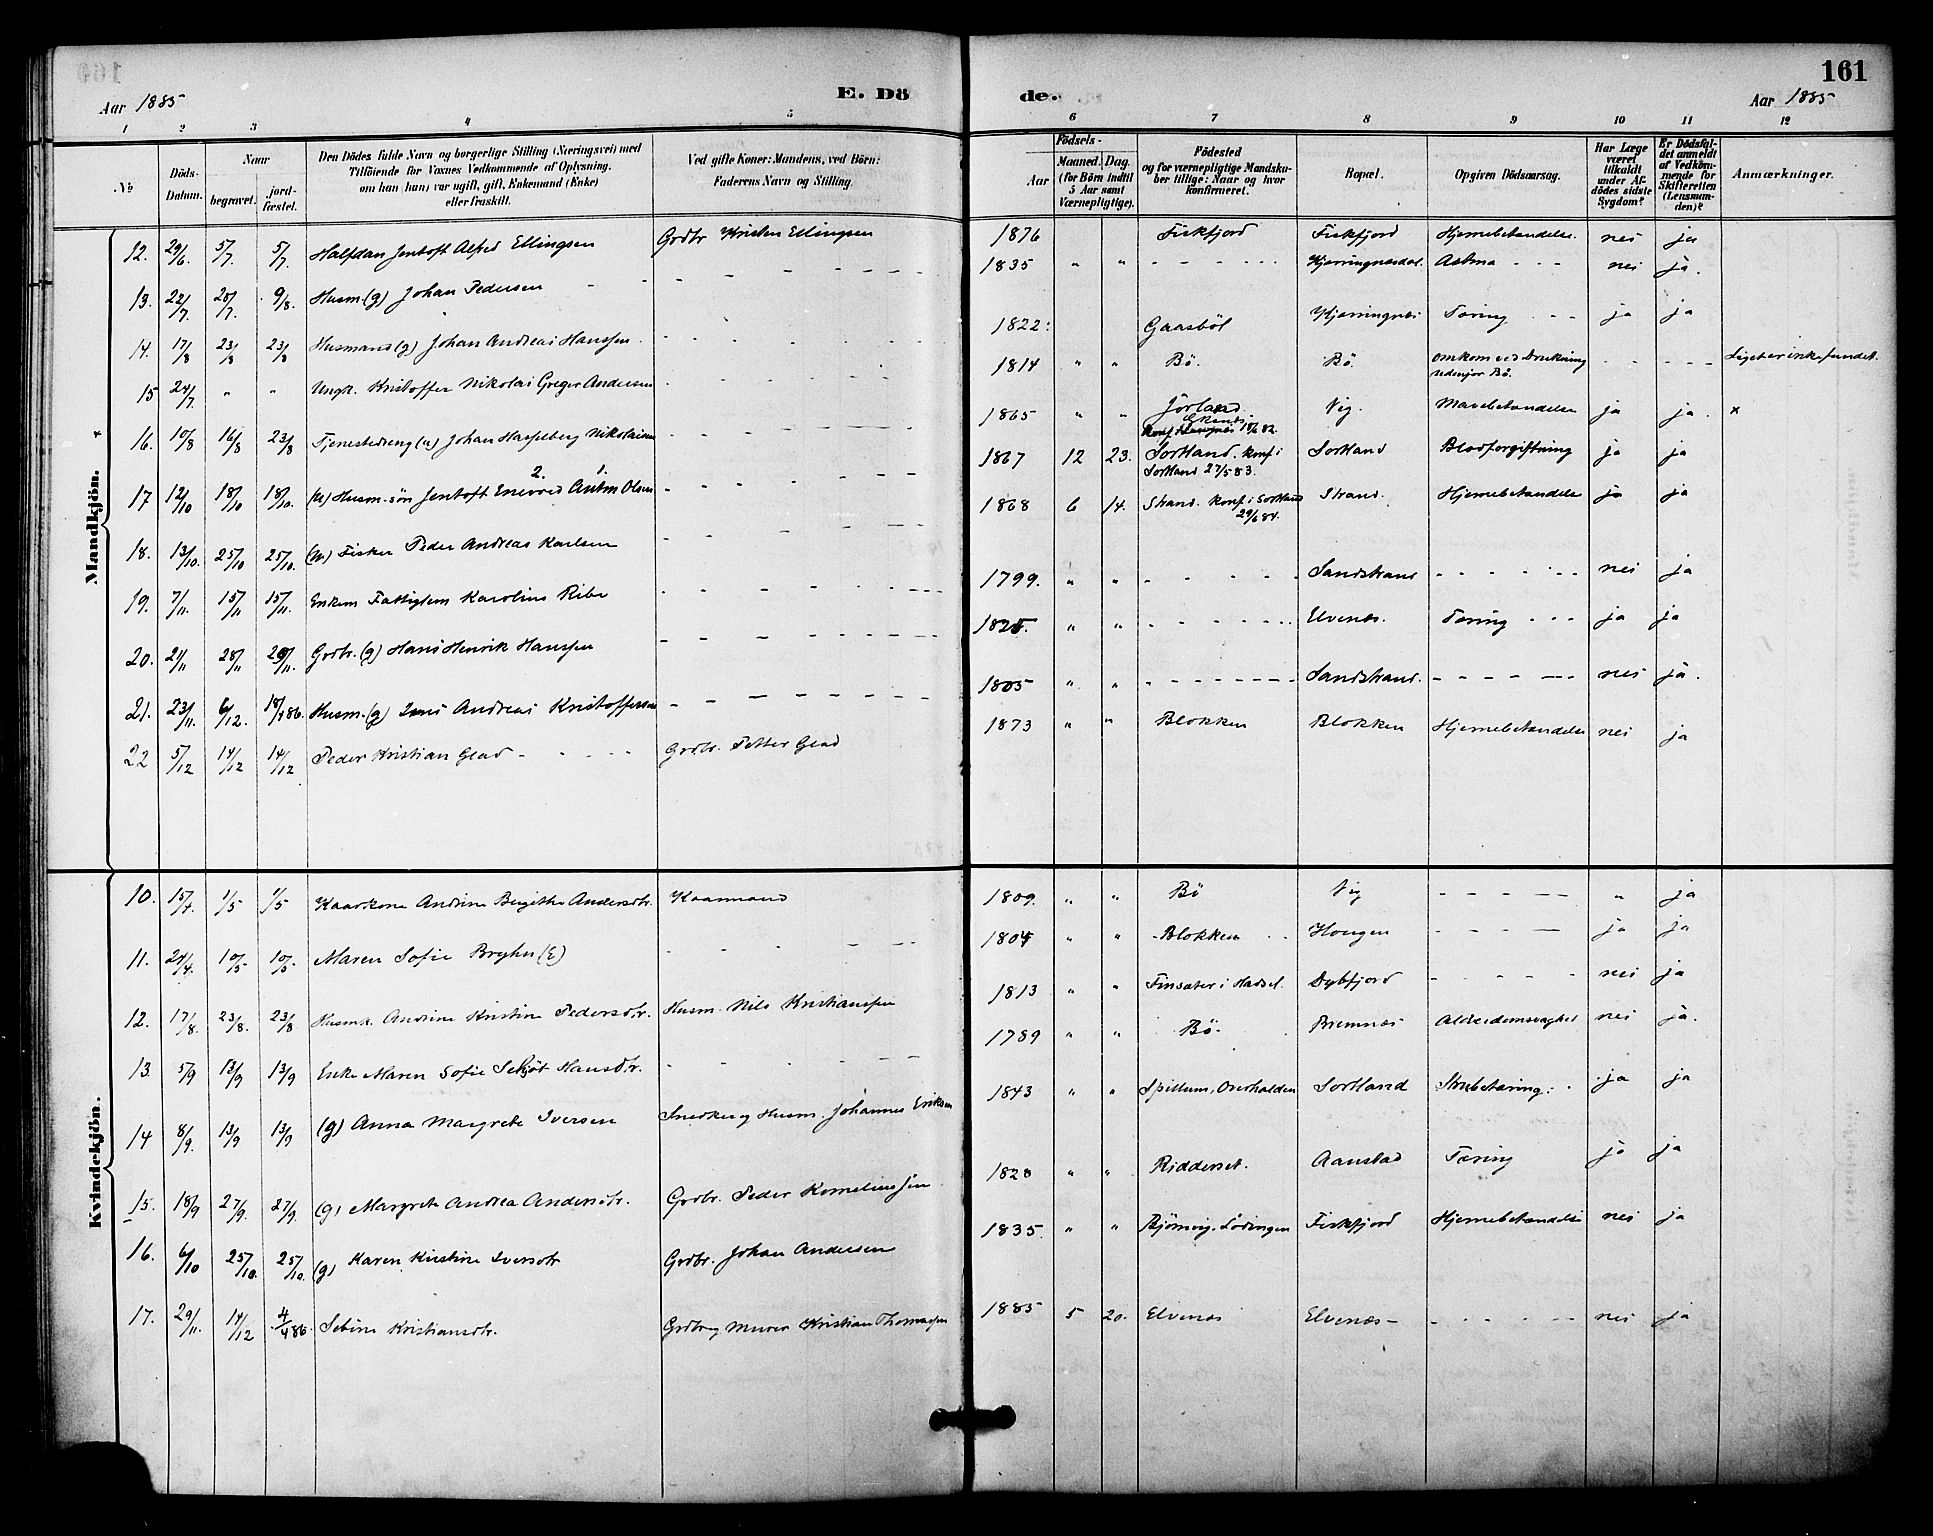 161
Aar 1885
E. Dö
de.
Aar 1885
1 2 3 4 5 6 7 8 9 10 11 12
No
Döds-Datum.
Naar
begravet.
jordfæstet.
Den Dödes fulde Navn og borgerlige Stilling (Næringsvei) med
Tilföiende for Voxnes Vedkommende af Oplysning,
om han (hun) var ugift, gift, Enkemand (Enke)
eller fraskilt.
Ved gifte Koner: Mandens, ved Börn:
Faderens Navn og Stilling.
Födsels-
Aar
Maaned. Dag.
(for Börn indtil
5 Aar samt
Værnepligtige).
Födested
og for værnepligtige Mandska-
ber tillige: Naar og hvor
konfirmeret.
Bopæl.
Opgiven Dödsaarsag.
Har Læge
været
tilkaldt
under Af-
dödes sidste
Sygdom?
Er Dödsfal-
det anmeldt
af Vedkom-
mende for
Skifteretten
(Lensman-
den)?
Anmærkninger.
Mandkjön.
12. 29/6. 5/7. 5/7. Halfdan Jentoft Alfred Ellingsen Grdbr Kristen Ellingsen 1876 Fiskfjord Fiskfjord Hjernebetændelse. nei ja
13. 22/7. 28/7. 9/8. Husm. (g) Johan Pedersen 1835 " " Kjerringnesdal. Astma nei ja.
14. 17/8 23/8 23/8 Husmand (g) Johan Andreas Hanssen 1822 Gaasböl Kjerringnes Tæring ja ja
15 24/7. " " Ungk. Kristoffer Nikolai Greger Andersen 1814 " " Bö. Bö. omkom ved Drukning
udenfor Bö. Liget er ikke fundet.
16. 10/8 16/8 23/8 Tjenestedreng (u) Johan Hasselberg Nikolaisen 1865 " " Jörland
Konf 18/6 82. Vig. Mavebetændelse ja ja. x
2. 1.
17 12/10 18/10 18/10. (u) Husm. sön Jentoft Enevold Anton Olsen 1867 12 23. Sortland. Konf i
Sortland 27/5 83. Sortland Blodforgiftning ja ja
18. 13/10. 25/10 25/10. (u) Fisker Peder Andreas Karlsen 1868 6 14. Strand. Konf. i Sortland
29/6 84. Strand. Hjernebetændelse ja ja
19. 7/11. 15/11 15/11. Enkem Fattiglem Karolius Ribe 1799. " " Sandstrand nei ja
20. 21/11 28/11 29/11. Grdbr. (g) Hans Henrik Hanssen 1825. " " Elvenes. Tæring ja ja
21. 23/11. 6/12. 18/4 86. Husm. (g) Andreas Kristoffersen 1805 " " Sandstrand. nei ja.
22 5/12 14/12 14/12 Peder Kristian Glad Grdbr. Petter Glad 1873 " " Blokken Blokken Hjernebetændelse nei ja
Kvindekjön.
10. 15/4. 1/5 1/5 Kaarkone Andrine Birgitha Andersdtr. Kaarmand 1809. " " Bö Vig " ja
11. 24/4. 10/5 10/5 Maren Sofie Bryhn (E) 1804 " " Blokken Hougen ja ja
12. 17/8. 23/8. 23/8 Husmk. Andrine Kristine Pedersdtr. Husm. Nils Kristianssen 1813 " " Finsæter i Hadsel. Dybfjord nei ja
13. 5/9 13/9 13/9 Enke Maren Sofie Hansdtr. 1789 " " Bö. Bremnes Alderdomssvaghed nei ja.
14 8/9. 13/9 13/9 (g) Anna Margrete Iversen Snedker og Husm. Johannes Eriksen 1843 " " Spillum, Overhalden Sortland Strubetæring. ja ja
15. 18/9 27/9. 27/9. (g) Margrete Andrea Andersdtr. Grdbr. Peder Korneliussen 1828 " " Ridderset. Aanstad Tæring ja ja
16. 6/10 25/10. 25/10. (g) Karen Kristine Iversdtr Grdbr. Johan Andersen 1835. " " Björnvig, Lödingen Fiskfjord Hjernebetændelse nei ja
17. 29/11. 14/12 4/4 86. Sebine Kristiansdtr. Grdbr og Murer Kristian Thomassen 1885 5 20. Elvenes Elvenes nei ja